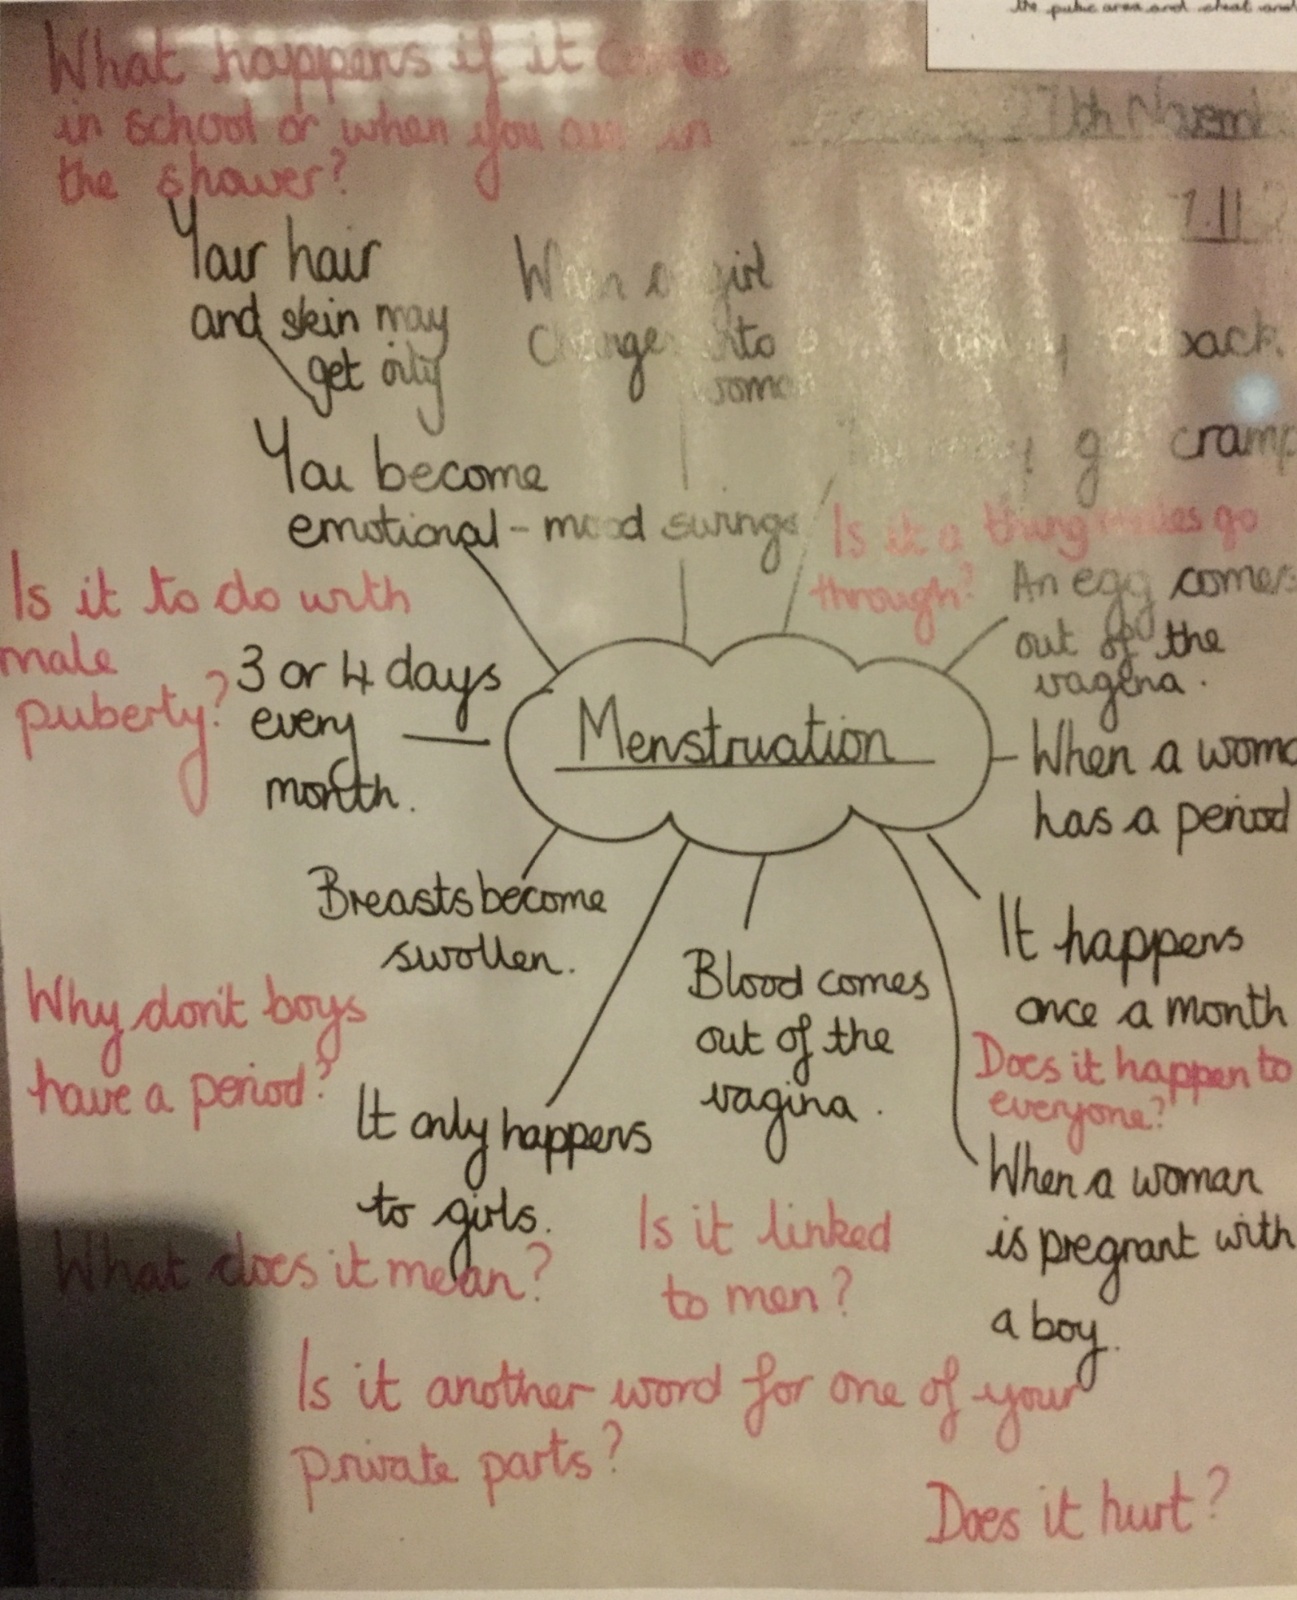 the pubic area and chest and
27th Novemb
What happens if it comes
in school or when you are in
the shower?
Your hair
and skin may
get oily
When a girl
changes into
woma
back.
cramp
You become
emotional - mood swings
Is it a thing males go
through?
An egg comes
out of the
vagina.
Is it to do with
male
puberty?
3 or 4 days
every
month.
Menstruation
When a woma
has a period
Breasts become
swollen.
Blood comes
out of the
vagina.
It happens
once a month
Does it happen to
everyone?
Why don't boys
have a period?
It only happens
to girls.
When a woman
is pregnant with
a boy.
What does it mean?
Is it linked
to men?
Is it another word for one of your
private parts?
Does it hurt?